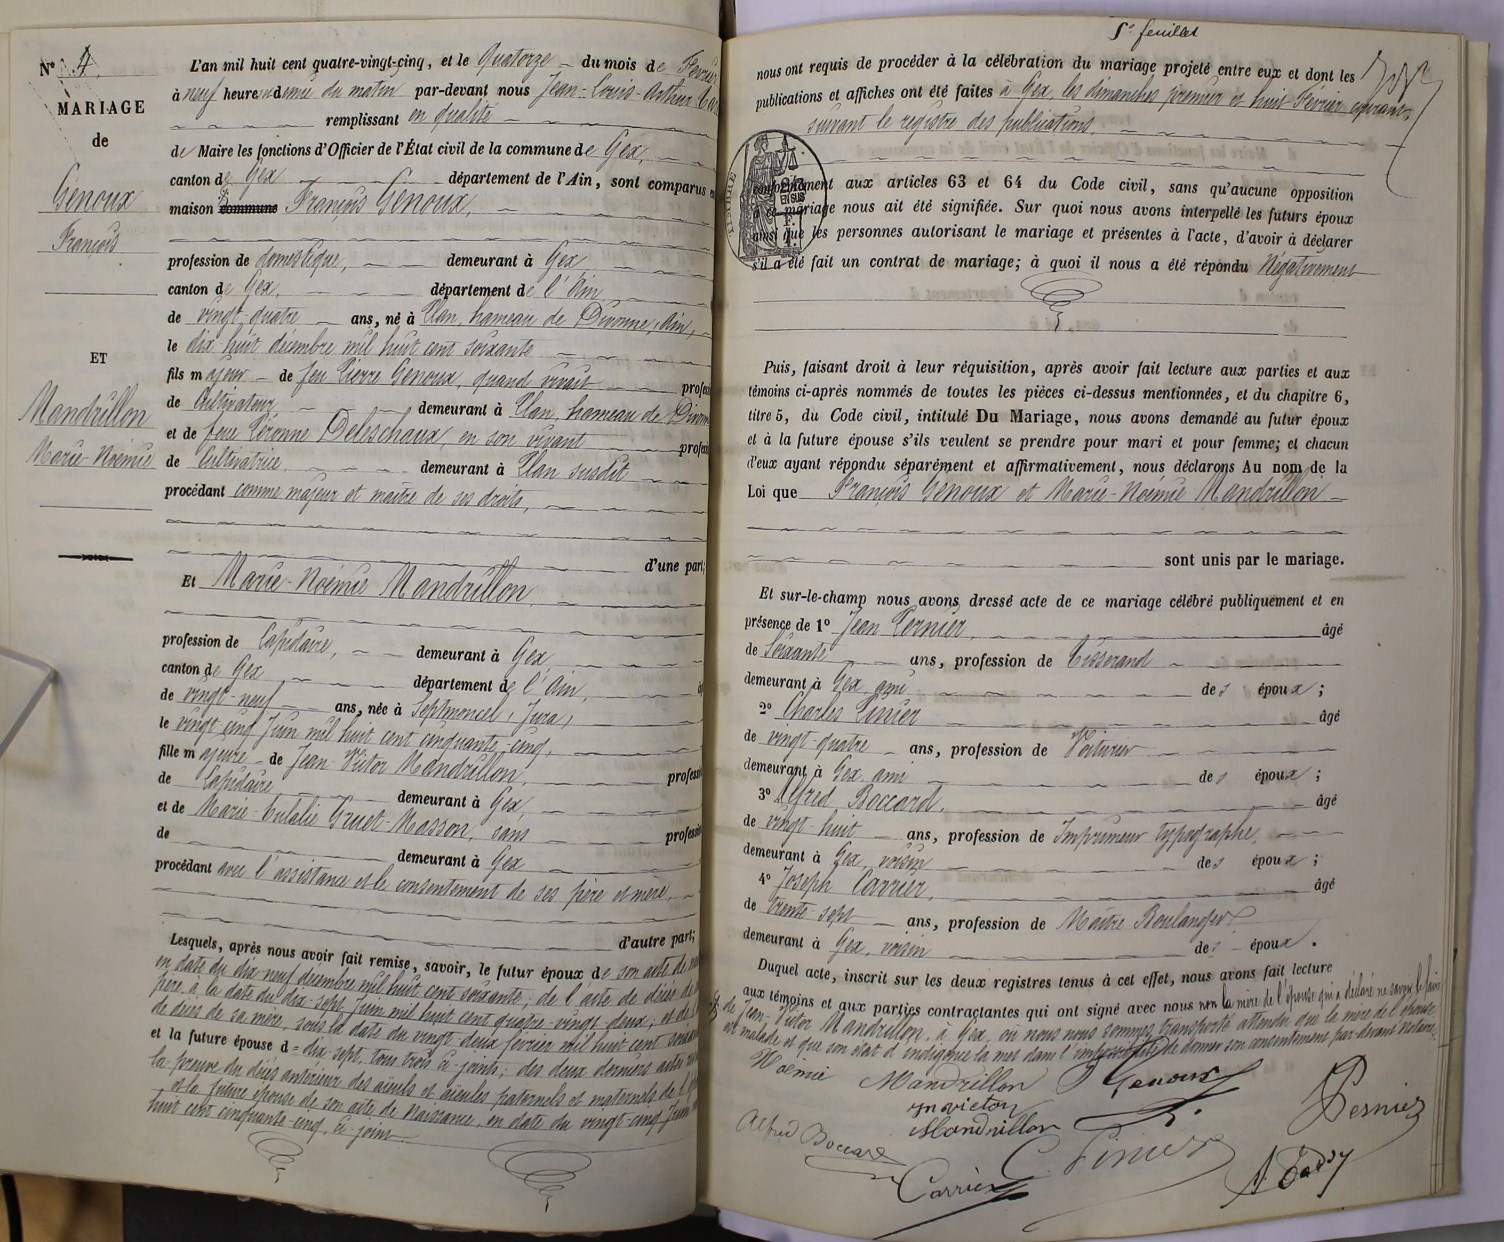 N° 4
MARIAGE
de
Genoux
François
ET
Mandrillon
Marie-Noémie
L'an mil huit cent quatre-vingt-cinq, et le Quatorze du mois de Février
à neuf heures et demie du matin par-devant nous Jean-Louis-Arthur
remplissant en qualité
de Maire les fonctions d'Officier de l'État civil de la commune de Gex,
canton de Gex département de l'Ain, sont comparus en
maison commune François Genoux,
profession de domestique, demeurant à Gex
canton de Gex, département de l'Ain
de vingt-quatre ans, né à Plan, hameau de Divonne, Ain,
le dix huit décembre mil huit cent soixante
fils majeur de feu Pierre Genoux, quand vivait profes
de Cultivateur demeurant à Plan, hameau de Divonne
et de feue Péronne Deleschaux, en son vivant profes
de Cultivatrice demeurant à Plan susdit
procédant comme majeur et maître de ses droits,
d'une part;
Et Marie-Noémie Mandrillon
profession de Lapidaire, demeurant à Gex,
canton de Gex département de l'Ain,
de vingt-neuf ans, née à Septmoncel, Jura,
le vingt-cinq Juin mil huit cent cinquante-cinq,
fille majeure de Jean-Victor Mandrillon, profession
de Lapidaire demeurant à Gex,
et de Marie-Eulalie Gruet-Masson, sans profession
de demeurant à Gex
procédant avec l'assistance et le consentement de ses père et mère,
d'autre part;
Lesquels, après nous avoir fait remise, savoir, le futur époux de son acte de
en date du dix-neuf décembre mil huit cent soixante; de l'acte de décès de
père, à la date du dix-sept Juin mil huit cent quatre-vingt deux; et de
de décès de sa mère, sous la date du vingt deux février mil huit cent soixante
et la future épouse d = dix-sept, tous trois ci-joints; des deux derniers actes
la preuve du décès antérieur des aïeuls et aïeules paternels et maternels de
et la future épouse de son acte de Naissance, en date du vingt-cinq Juin
huit cent cinquante-cinq, ci-joint
5e feuillet
nous ont requis de procéder à la célébration du mariage projeté entre eux et dont les
publications et affiches ont été faites à Gex, les dimanches premier et huit Février courant,
suivant le registre des publications.
TIMBRE
EN SUS
conformément aux articles 63 et 64 du Code civil, sans qu'aucune opposition
à ce mariage nous ait été signifiée. Sur quoi nous avons interpellé les futurs époux
ainsi que les personnes autorisant le mariage et présentes à l'acte, d'avoir à déclarer
s'il a été fait un contrat de mariage; à quoi il nous a été répondu Négativement
Puis, faisant droit à leur réquisition, après avoir fait lecture aux parties et aux
témoins ci-après nommés de toutes les pièces ci-dessus mentionnées, et du chapitre 6,
titre 5, du Code civil, intitulé Du Mariage, nous avons demandé au futur époux
et à la future épouse s'ils veulent se prendre pour mari et pour femme; et chacun
d'eux ayant répondu séparément et affirmativement, nous déclarons Au nom de la
Loi que François Genoux et Marie-Noémie Mandrillon
sont unis par le mariage.
Et sur-le-champ nous avons dressé acte de ce mariage célébré publiquement et en
présence de 1° Jean Pernier, âgé
de Soixante ans, profession de Tisserand
demeurant à Gex, ami des époux;
2° Charles Pinier âgé
de vingt-quatre ans, profession de Voiturier
demeurant à Gex, ami des époux;
3° Alfred Boccard, âgé
de vingt-huit ans, profession de Imprimeur typographe,
demeurant à Gex, voisin des époux;
4° Joseph Carrier, âgé
de trente sept ans, profession de Maître Boulanger
demeurant à Gex, voisin des époux.
Duquel acte, inscrit sur les deux registres tenus à cet effet, nous avons fait lecture
aux témoins et aux parties contractantes qui ont signé avec nous non la mère de l'épouse qui a déclaré ne savoir le faire
de Jean-Victor Mandrillon, à Gex, où nous nous sommes transporté attendu que la mère de l'épouse
est malade et que son état d'indigence la met dans l'impossibilité de donner son consentement par-devant notaire.
Noémie Mandrillon F Genoux
Mandrillon
Pernier
Alfred Boccard
Carrier C. Pinier